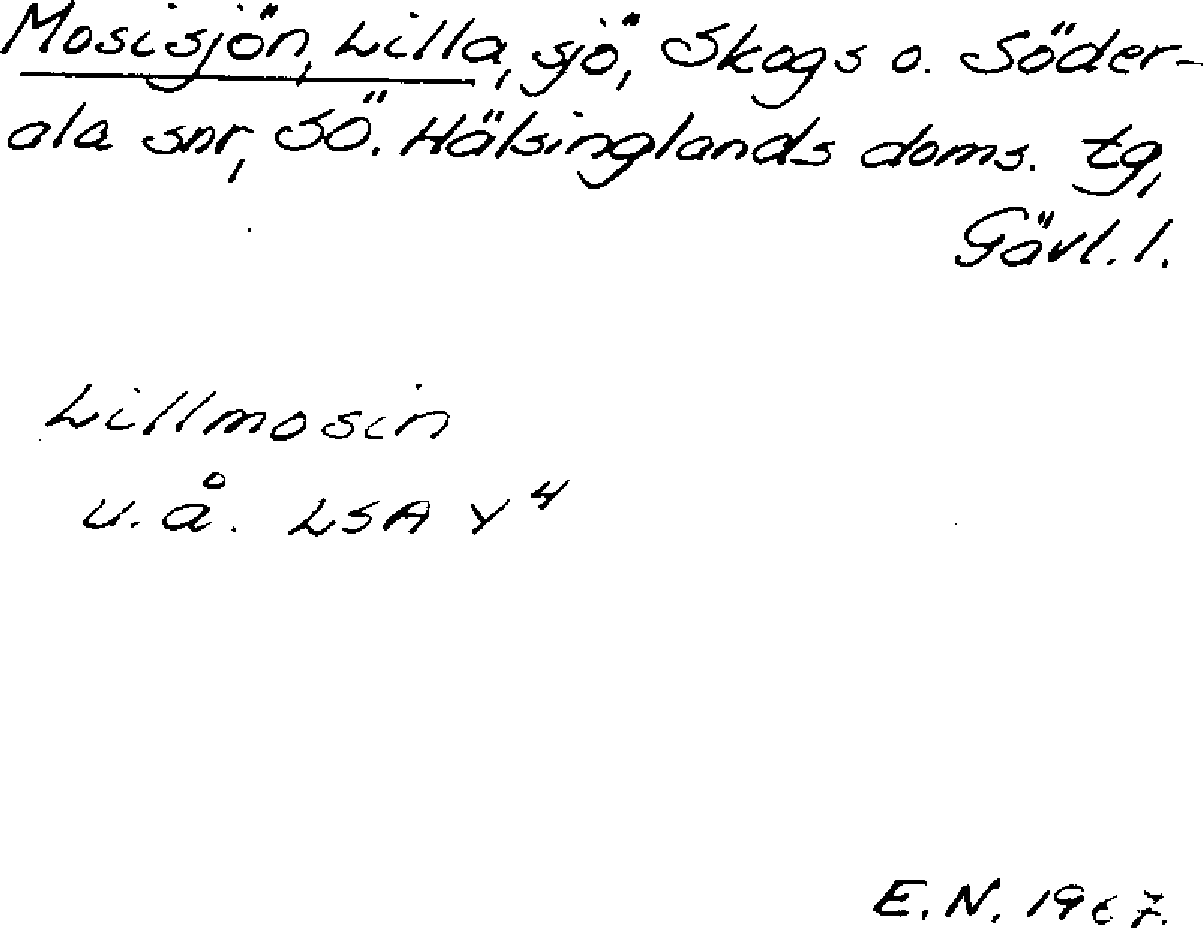 Mosisjön, Lilla, sjö, Skogs o. Söder-
ala snr, SÖ. Hälsinglands doms. tg,
Gävl. l.
Lillmosin
u. å. LSA Y 4
E. N. 1967.